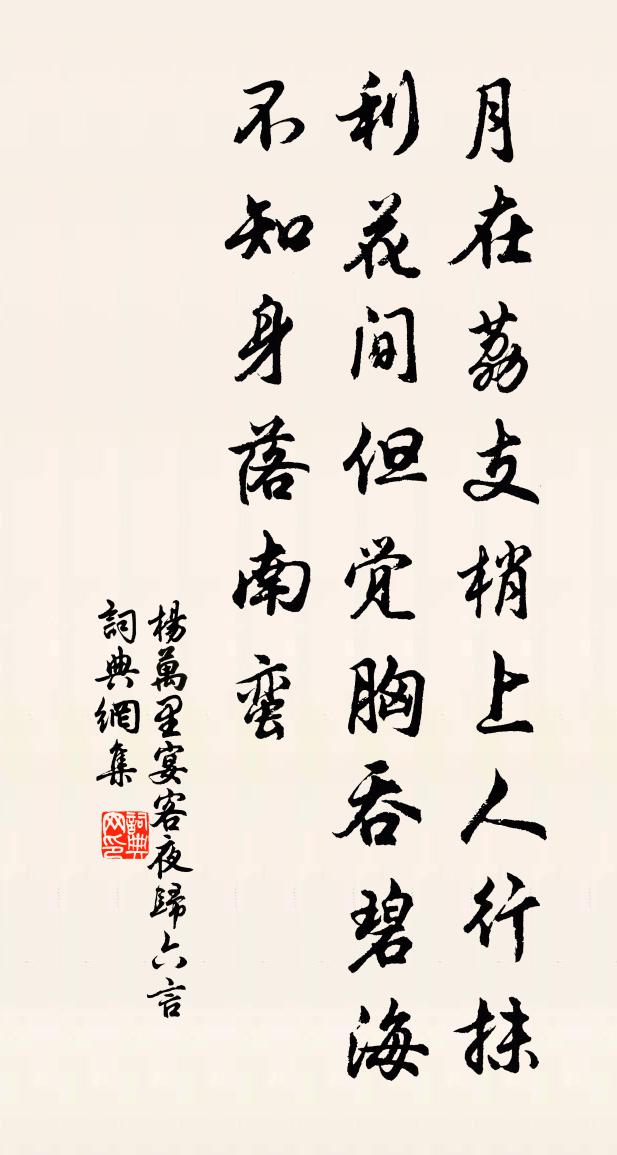 月在荔支梢上人行抹
利花间但觉胸吞碧海
不知身落南蛮
楊萬里宴客夜歸六言
詞典網集
詞典
网印